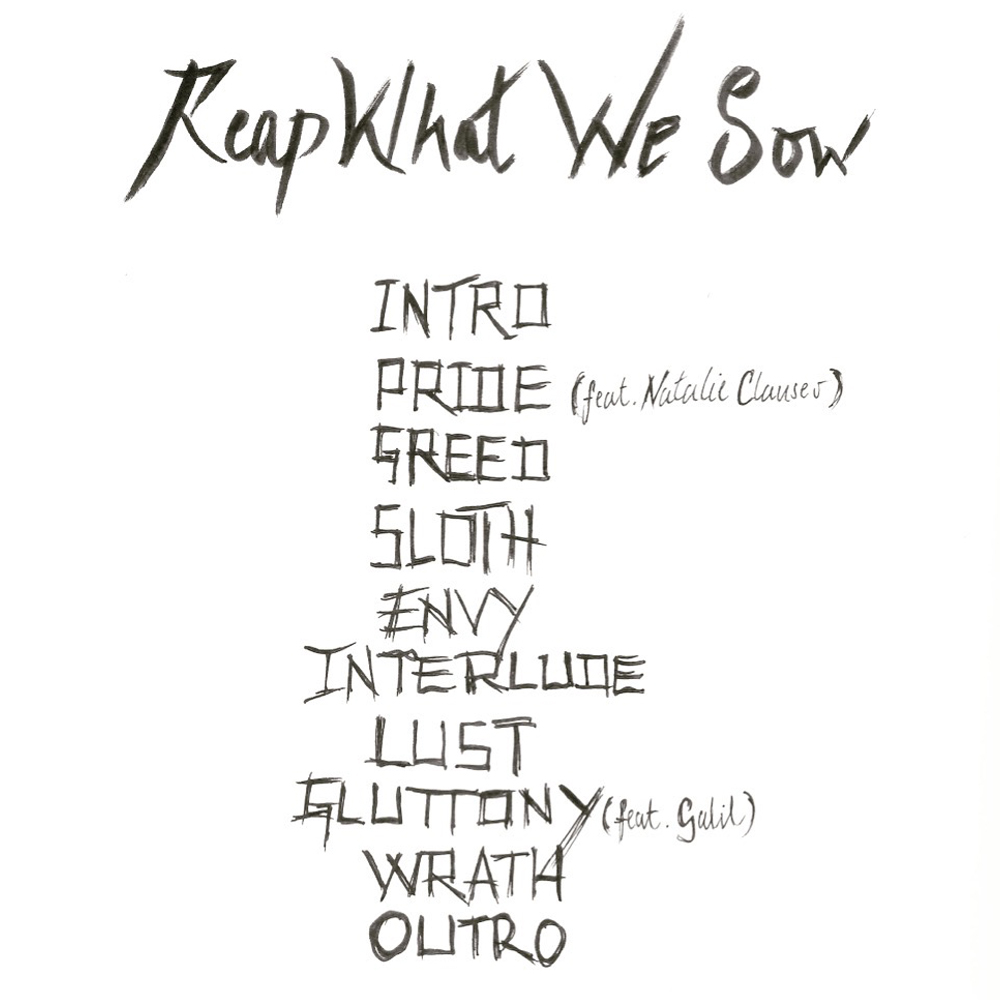 Reap What We Sow
INTRO
PRIDE (feat. Natalie Clauser)
GREED
SLOTH
ENVY
INTERLUDE
LUST
GLUTTONY (feat. Galil)
WRATH
OUTRO